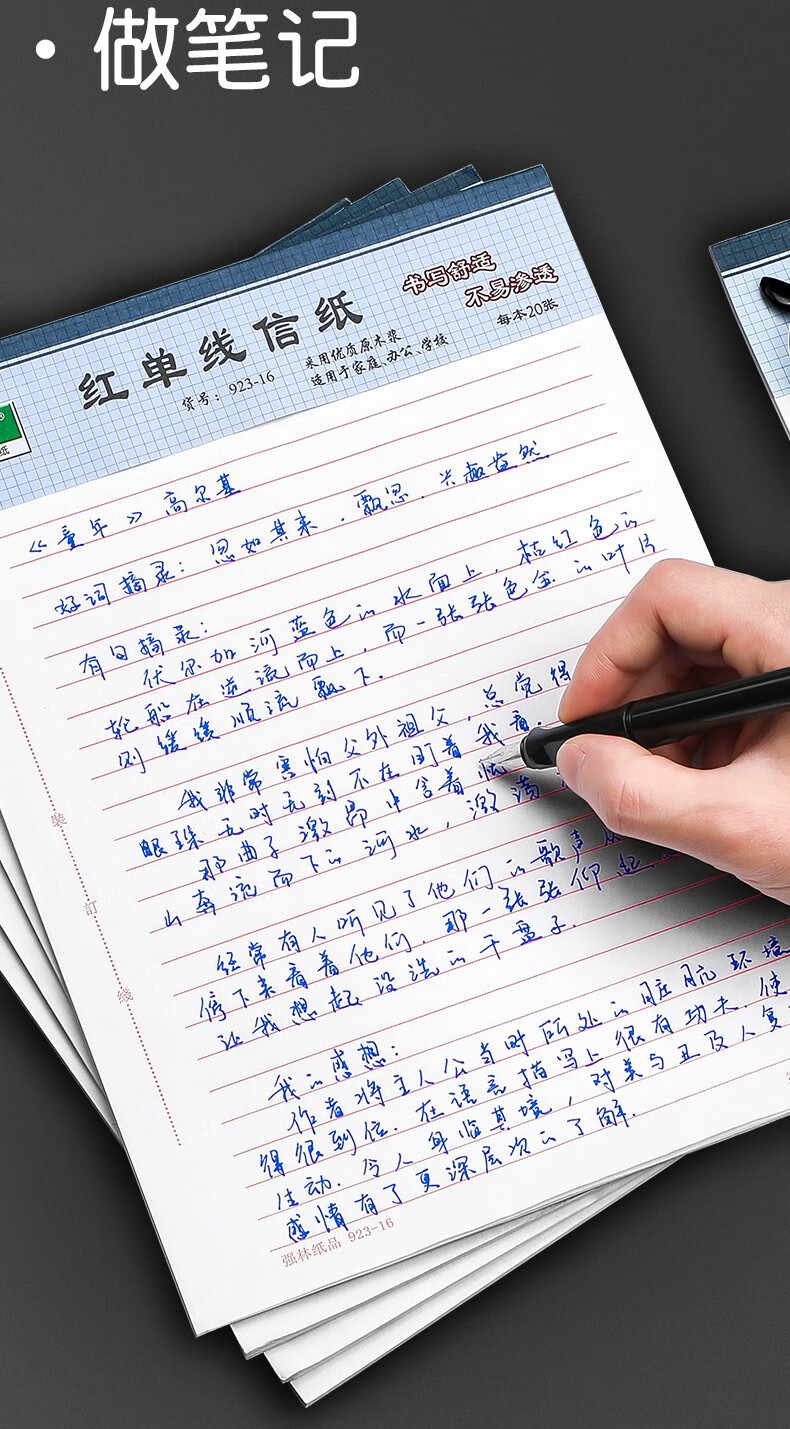 · 做笔记
书写舒适
不易渗透
红单线信纸
每本20张
采用优质原木浆
货号：923-16
适用于家庭、办公、学校
纸
《童年》高尔基
好词摘录：忽如其来．飘忽．兴趣昂然
有日摘录：
伏尔加河蓝色的水面上，桔红色的
轮船在逆流而上，而一张张色金的叶片
则缓缓顺流飘下．
我非常害怕父外祖父，总觉得
眼珠无时无刻不在盯着我看．
那曲子激昂中含着忧
山奔流而下的河水，激荡
经常有人听见了他们的歌声
停下来看着他们．那一张张仰起
让我想起没洗的干盘子．
我的感想：
作者将主人公当时所处的肮脏环境
得很到位．在语言描写上很有功夫．使
生动．令人身临其境，对美与丑及人复
感情有了更深层次的了解．
装
订
线
强林纸品 923-16